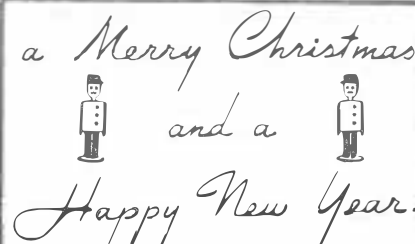 a Merry Christmas
and a
Happy New Year.